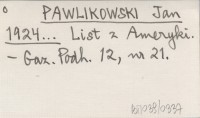 PAWLIKOWSKI Jan
1924... List z Ameryki.
- Gaz. Podh. 12, nr 21.